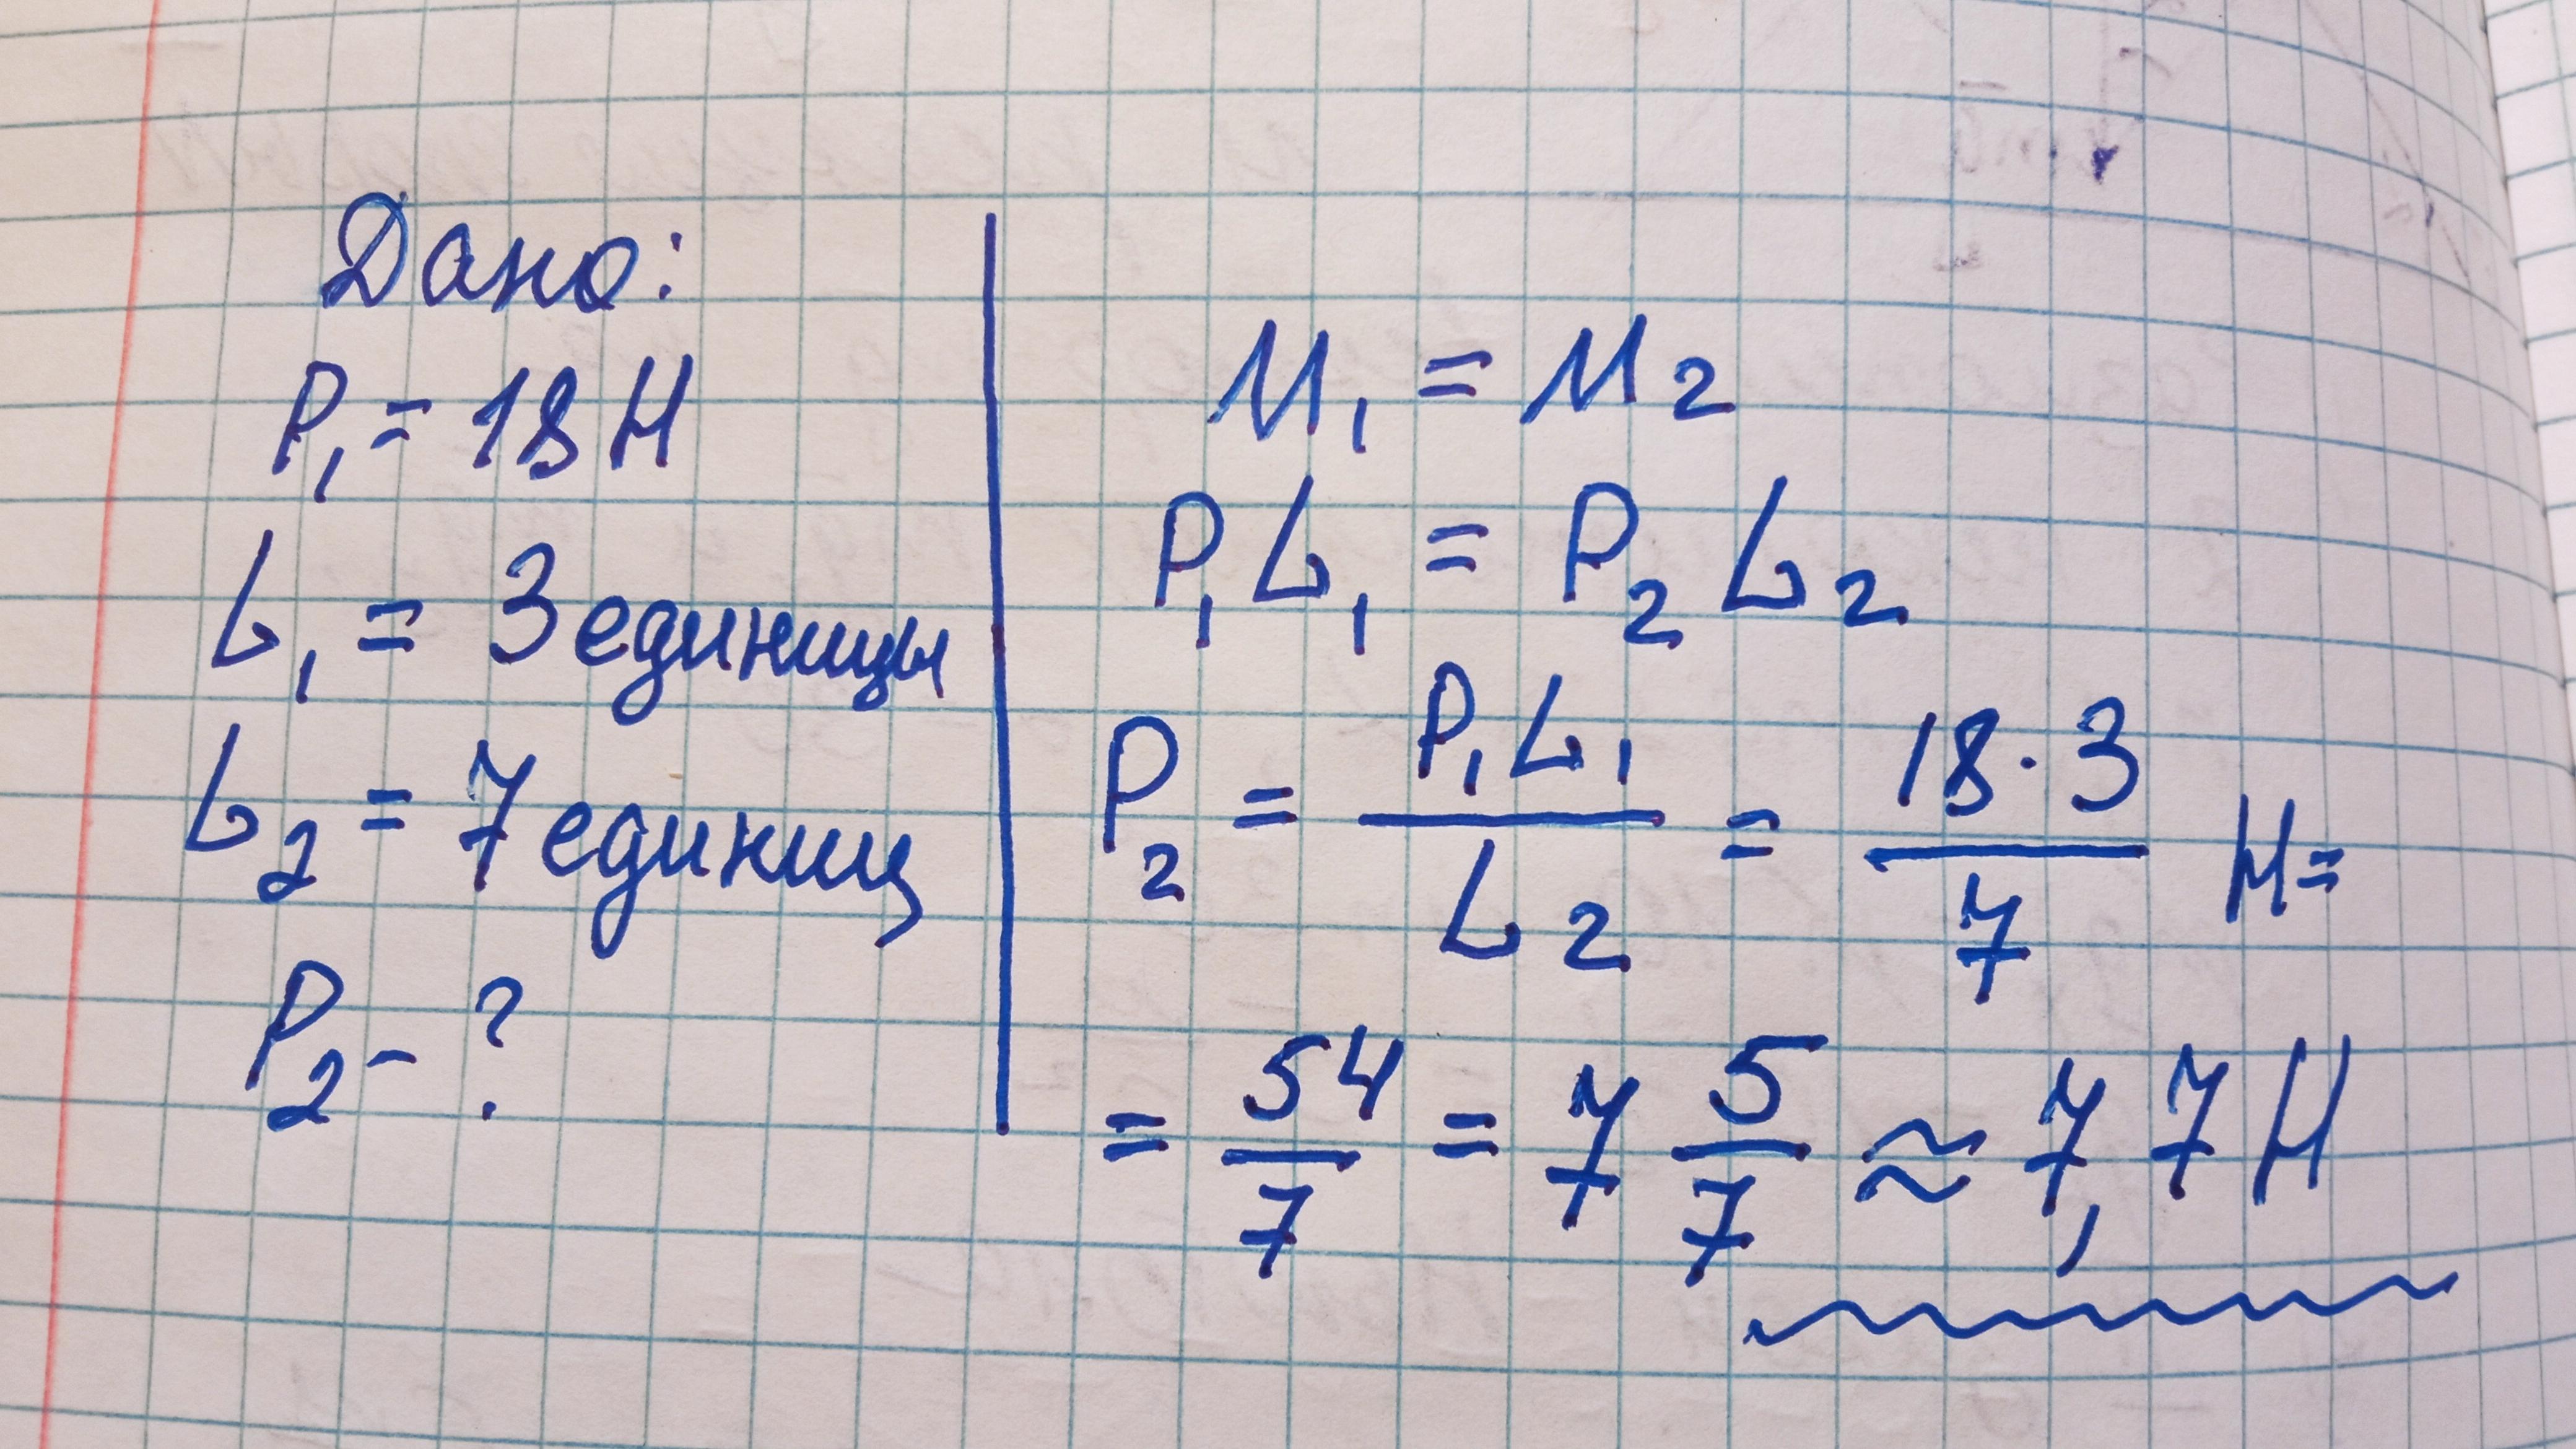 Дано:
P₁ = 18 Н
L₁ = 3 единицы
L₂ = 7 единиц
P₂ - ?
M₁ = M₂
P₁L₁ = P₂L₂
P₂ = P₁L₁/L₂ = 18·3/7 Н =
= 54/7 = 7 5/7 ≈ 7,7 Н